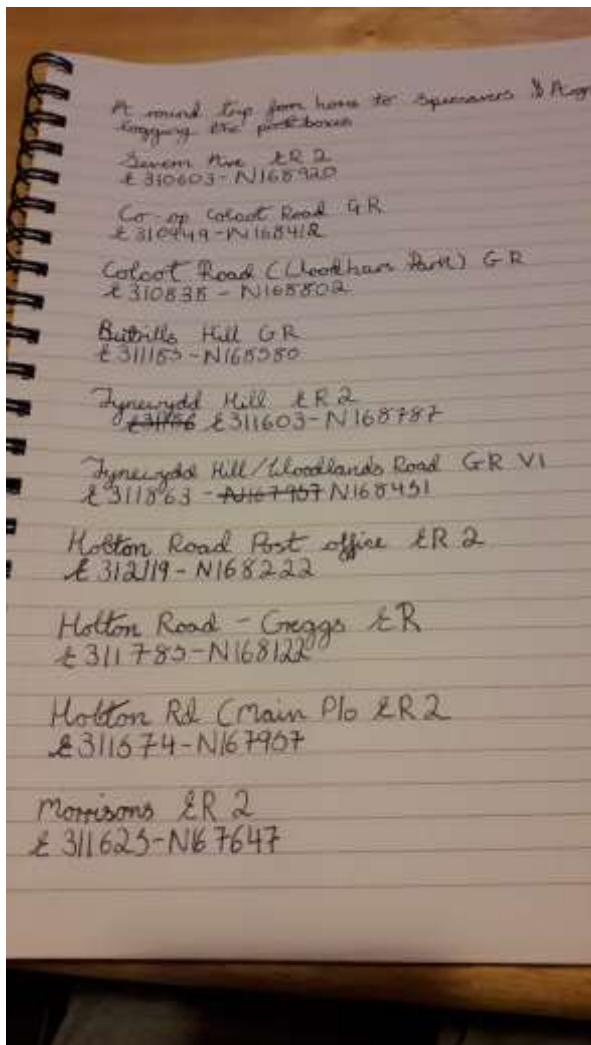 A round trip from home to Specsavers &
logging the post boxes
Severn Ave ER 2
E 310603-N168920
Co-op Colcot Road GR
E 310949-N168412
Colcot Road (Woodham Park) GR
E 310838 - N168802
Buttrills Hill GR
E 311185-N168580
Tynewydd Hill ER 2
E 311603-N168787
Tynewydd Hill/Woodlands Road GR VI
E 311863 - N167957 N168451
Holton Road Post office ER 2
E 312119-N168222
Holton Road - Greggs ER
E 311785-N168122
Holton Rd (Main P/o ER 2
E 311574-N167957
Morrisons ER 2
E 311625-N167647